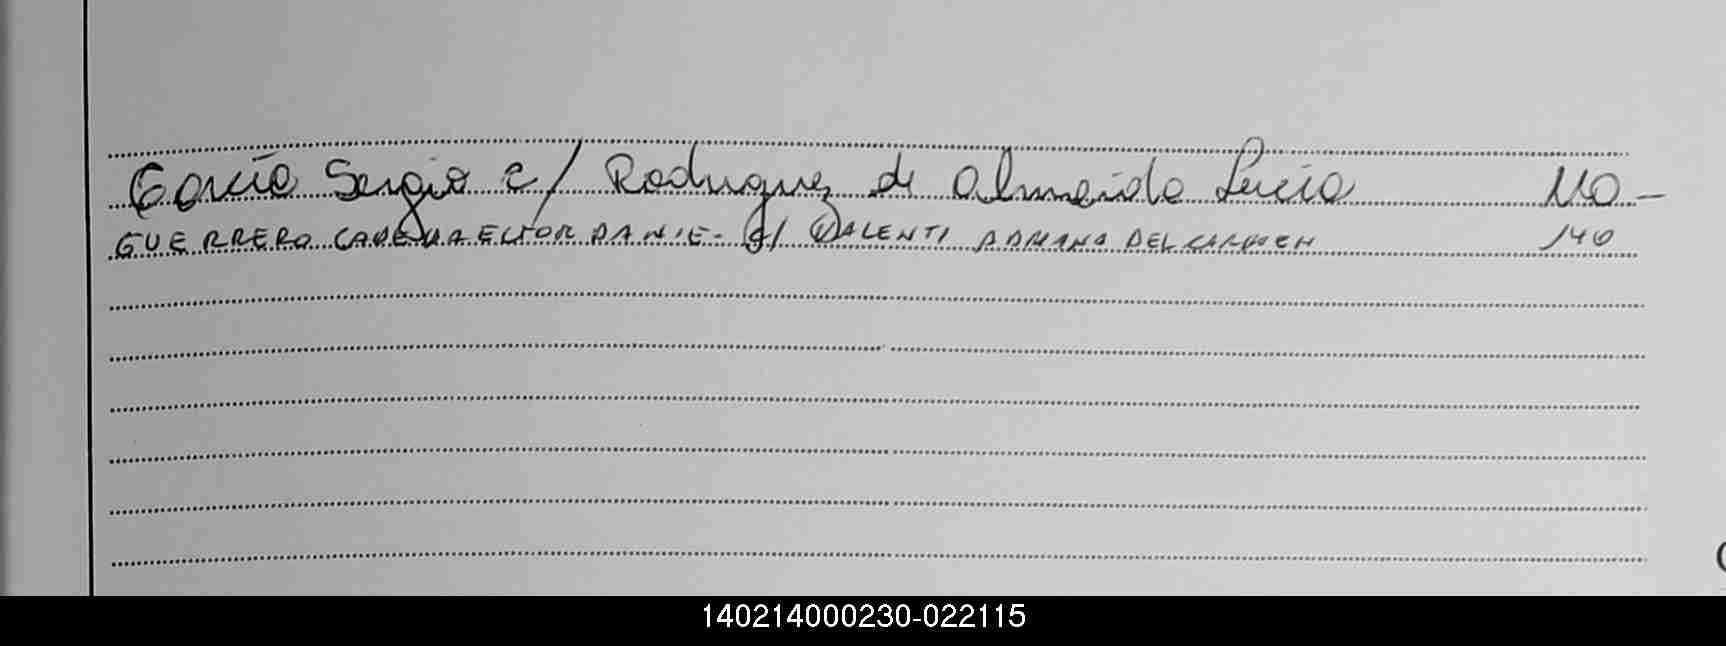 García Sergio c/ Rodriguez de Almeida Lucia 110 -
GUERRERO CADENA ECTOR DANIE- c/ VALENTI ADRIANA DEL CARMEN 140
140214000230-022115